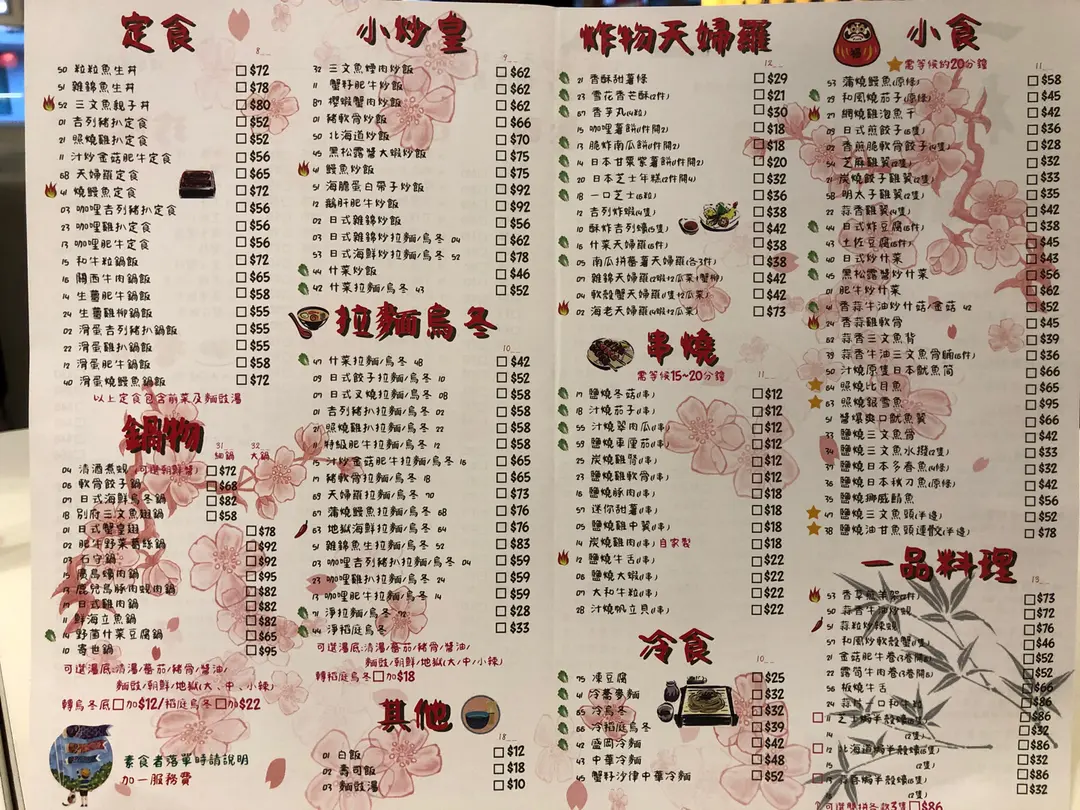 定食
8
50 粒粒魚生丼 $72
51 雜錦魚生丼 $78
52 三文魚親子丼 $80
01 吉列豬扒定食 $52
21 照燒雞扒定食 $52
11 汁炒金菇肥牛定食 $56
68 天婦羅定食 $65
41 燒鰻魚定食 $72
03 咖喱吉列豬扒定食 $56
23 咖喱雞扒定食 $56
13 咖喱肥牛定食 $56
15 和牛粒鍋飯 $72
16 關西牛肉鍋飯 $65
14 生薑肥牛鍋飯 $58
24 生薑雞柳鍋飯 $55
02 滑蛋吉列豬扒鍋飯 $55
22 滑蛋雞扒鍋飯 $55
12 滑蛋肥牛鍋飯 $58
40 滑蛋燒鰻魚鍋飯 $72
以上定食包含前菜及麵豉湯
鍋物
31 細鍋 32 大鍋
04 清酒煮蜆(可選朝鮮醬) $72
06 軟骨餃子鍋 $68
07 日式海鮮烏冬鍋 $82
18 別府三文魚翅鍋 $58
01 日式蟹皇翅 $78
02 肥牛野菜薯絲鍋 $92
03 石守鍋 $92
15 廣島蠔肉鍋 $95
13 鹿兒島豚肉蜆肉鍋 $82
17 日式雞肉鍋 $82
11 鮮海立魚鍋 $82
14 野菌什菜豆腐鍋 $65
10 寄世鍋 $95
可選湯底:清湯/蕃茄/豬骨/醬油/
麵豉/朝鮮/地獄(大、中、小辣)
轉烏冬底加$12/稻庭烏冬加$22
素食者落單時請說明
加一服務費
小炒皇
9
32 三文魚煙肉炒飯 $62
11 蟹籽肥牛炒飯 $62
87 櫻蝦蟹肉炒飯 $62
01 豬軟骨炒飯 $66
50 北海道炒飯 $70
45 黑松露醬大蝦炒飯 $75
41 鰻魚炒飯 $75
51 海膽蛋白帶子炒飯 $92
12 鵝肝肥牛炒飯 $92
02 日式雜錦炒飯 $56
03 日式雜錦炒拉麵/烏冬 04 $62
53 日式海鮮炒拉麵/烏冬 52 $78
44 什菜炒飯 $46
42 什菜拉麵/烏冬 43 $52
拉麵烏冬
10
47 什菜拉麵/烏冬 48 $42
09 日式餃子拉麵/烏冬 10 $52
07 日式叉燒拉麵/烏冬 08 $58
01 吉列豬扒拉麵/烏冬 02 $58
21 照燒雞扒拉麵/烏冬 22 $58
11 特級肥牛拉麵/烏冬 12 $58
15 汁炒金菇肥牛拉麵/烏冬 16 $65
17 豬軟骨拉麵/烏冬 18 $65
69 天婦羅拉麵/烏冬 70 $73
67 蒲燒鰻魚拉麵/烏冬 68 $76
63 地獄海鮮拉麵/烏冬 64 $76
51 雜錦魚生拉麵/烏冬 52 $83
03 咖喱吉列豬扒拉麵/烏冬 04 $59
23 咖喱雞扒拉麵/烏冬 24 $59
13 咖喱肥牛拉麵/烏冬 14 $59
71 淨拉麵/烏冬 72 $28
44 淨稻庭烏冬 $33
可選湯底:清湯/蕃茄/豬骨/醬油/
麵豉/朝鮮/地獄(大/中/小辣)
轉稻庭烏冬加$18
其他
18
01 白飯 $12
02 壽司飯 $18
03 麵豉湯 $10
炸物天婦羅
12
21 香酥甜薯條 $29
23 雪花香芒酥(2件) $21
67 香芋丸(6粒) $30
15 咖喱薯餅(1件開2) $18
13 脆炸南瓜餅(1件開2) $18
14 日本甘栗家薯餅(1件開2) $20
20 日本芝士年糕(2件開4) $32
18 一口芝士(6粒) $36
12 吉列炸蝦(4隻) $38
10 酥炸吉列蠔(5隻) $42
16 什菜天婦羅(6件) $38
05 南瓜拼蕃薯天婦羅(各3件) $38
07 雜錦天婦羅(2蝦+2瓜菜+蟹柳) $42
04 軟殼蟹天婦羅(1隻+2瓜菜) $42
02 海老天婦羅(4蝦+2瓜菜) $73
串燒
需等候15~20分鐘
11
17 鹽燒冬菇(1串) $12
18 汁燒茄子(1串) $12
55 汁燒翠肉瓜(1串) $12
59 鹽燒車厘茄(1串) $12
25 炭燒雞腎(1串) $12
23 鹽燒雞軟骨(1串) $12
16 鹽燒豚肉(1串) $12
57 迷你甜薯(1串) $18
05 鹽燒雞中翼(1串) $18
14 炭燒雞肉(1串)自家製 $18
12 鹽燒牛舌(1串) $22
06 鹽燒大蝦(1串) $22
07 大和牛粒(1串) $22
28 汁燒帆立貝(1串) $22
冷食
10
75 凍豆腐 $25
41 冷蕎麥麵 $32
65 冷烏冬 $32
66 冷稻庭烏冬 $39
42 盛岡冷麵 $42
43 中華冷麵 $48
45 蟹籽沙律中華冷麵 $52
小食
需等候約20分鐘
11
53 蒲燒鰻魚(原條) $58
29 和風燒茄子(原條) $45
27 網燒雞泡魚干 $42
09 日式煎餃子(6隻) $36
02 香煎脆軟骨餃子(4隻) $28
54 芝麻雞翼(4隻) $32
21 炭燒餃子雞翼(2隻) $33
58 明太子雞翼(2隻) $35
22 蒜香雞翼(4隻) $42
44 日式炸豆腐(6件) $38
43 土佐豆腐(6件) $45
40 日式炒什菜 $43
45 黑松露醬炒什菜 $56
01 肥牛炒什菜 $62
41 香蒜牛油炒什菇/金菇 42 $52
24 香蒜雞軟骨 $45
62 香蒜三文魚背 $39
39 蒜香牛油三文魚骨腩(6件) $36
50 汁燒原隻日本魷魚筒 $66
64 照燒比目魚 $65
63 照燒銀雪魚 $95
51 醬爆爽口魷魚翼 $66
33 鹽燒三文魚骨 $42
34 鹽燒三文魚水撥(2隻) $33
37 鹽燒日本多春魚(4條) $32
36 鹽燒日本秋刀魚(原條) $42
35 鹽燒挪威鯖魚 $56
47 鹽燒三文魚頭(半邊) $52
38 鹽燒油甘魚頭連散(半邊) $78
一品料理
13
53 香草燒羊架(2件) $73
50 蒜香牛油炒蜆 $72
51 蒜粒炒辣蜆 $76
57 和風炒軟殼蟹(1隻) $46
21 金菇肥牛卷(3卷開6) $52
22 露筍牛肉卷(3卷開6) $52
56 板燒牛舌 $66
24 蒜片一口和牛粒 $86
11 芝士焗半殼蠔(6隻) $86
14 (2隻) $32
12 北海道焗半殼蠔(6隻) $86
15 (2隻) $32
蒜蓉焗半殼蠔(6隻) $86
(2隻) $32
可選雙拼各款3隻 $86